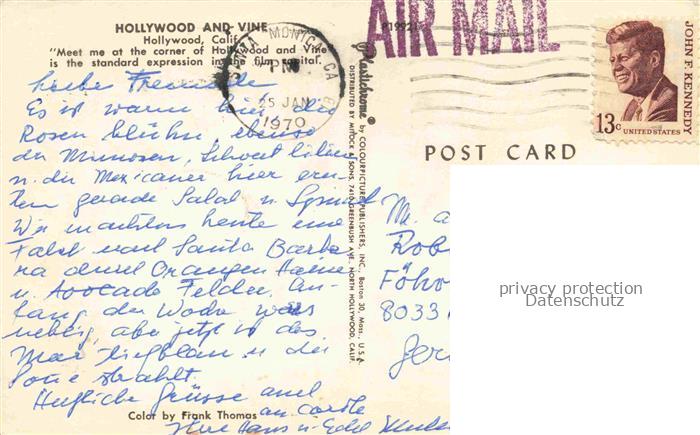 HOLLYWOOD AND VINE
Hollywood, Calif.
"Meet me at the corner of Hollywood and Vine"
is the standard expression in the film capital.
Liebe Freunde
Es ist warm hier die
Rosen blühn ebenso
die Mimosen, Schwertlilien
u. die Mexicaner hier ern-
ten gerade Salat u. Spinat
Wir machten heute eine
Fahrt nach Santa Barba
ra durch Orangen Haine
u. Avocado Felder. An-
fang der Woche war es
neblig, aber jetzt ist das
Meer tiefblau u. die
Sonne strahlt.
Herzliche Grüsse and
an
Ihre Hans u.
Color by Frank Thomas
P19921
Plastichrome ®
by COLOURPICTURE PUBLISHERS, INC., Boston 30, Mass., U.S.A.
DISTRIBUTED BY MITOCK & SONS, 7410 GREENBUSH AVE. NORTH HOLLYWOOD, CALIF.
AIR MAIL
SANTA MONICA, CA
PM
25 JAN
1970
JOHN F. KENNEDY
13c UNITED STATES
POST CARD
Mr. a
Rob
Föhr
8033
Ger
privacy protection
Datenschutz